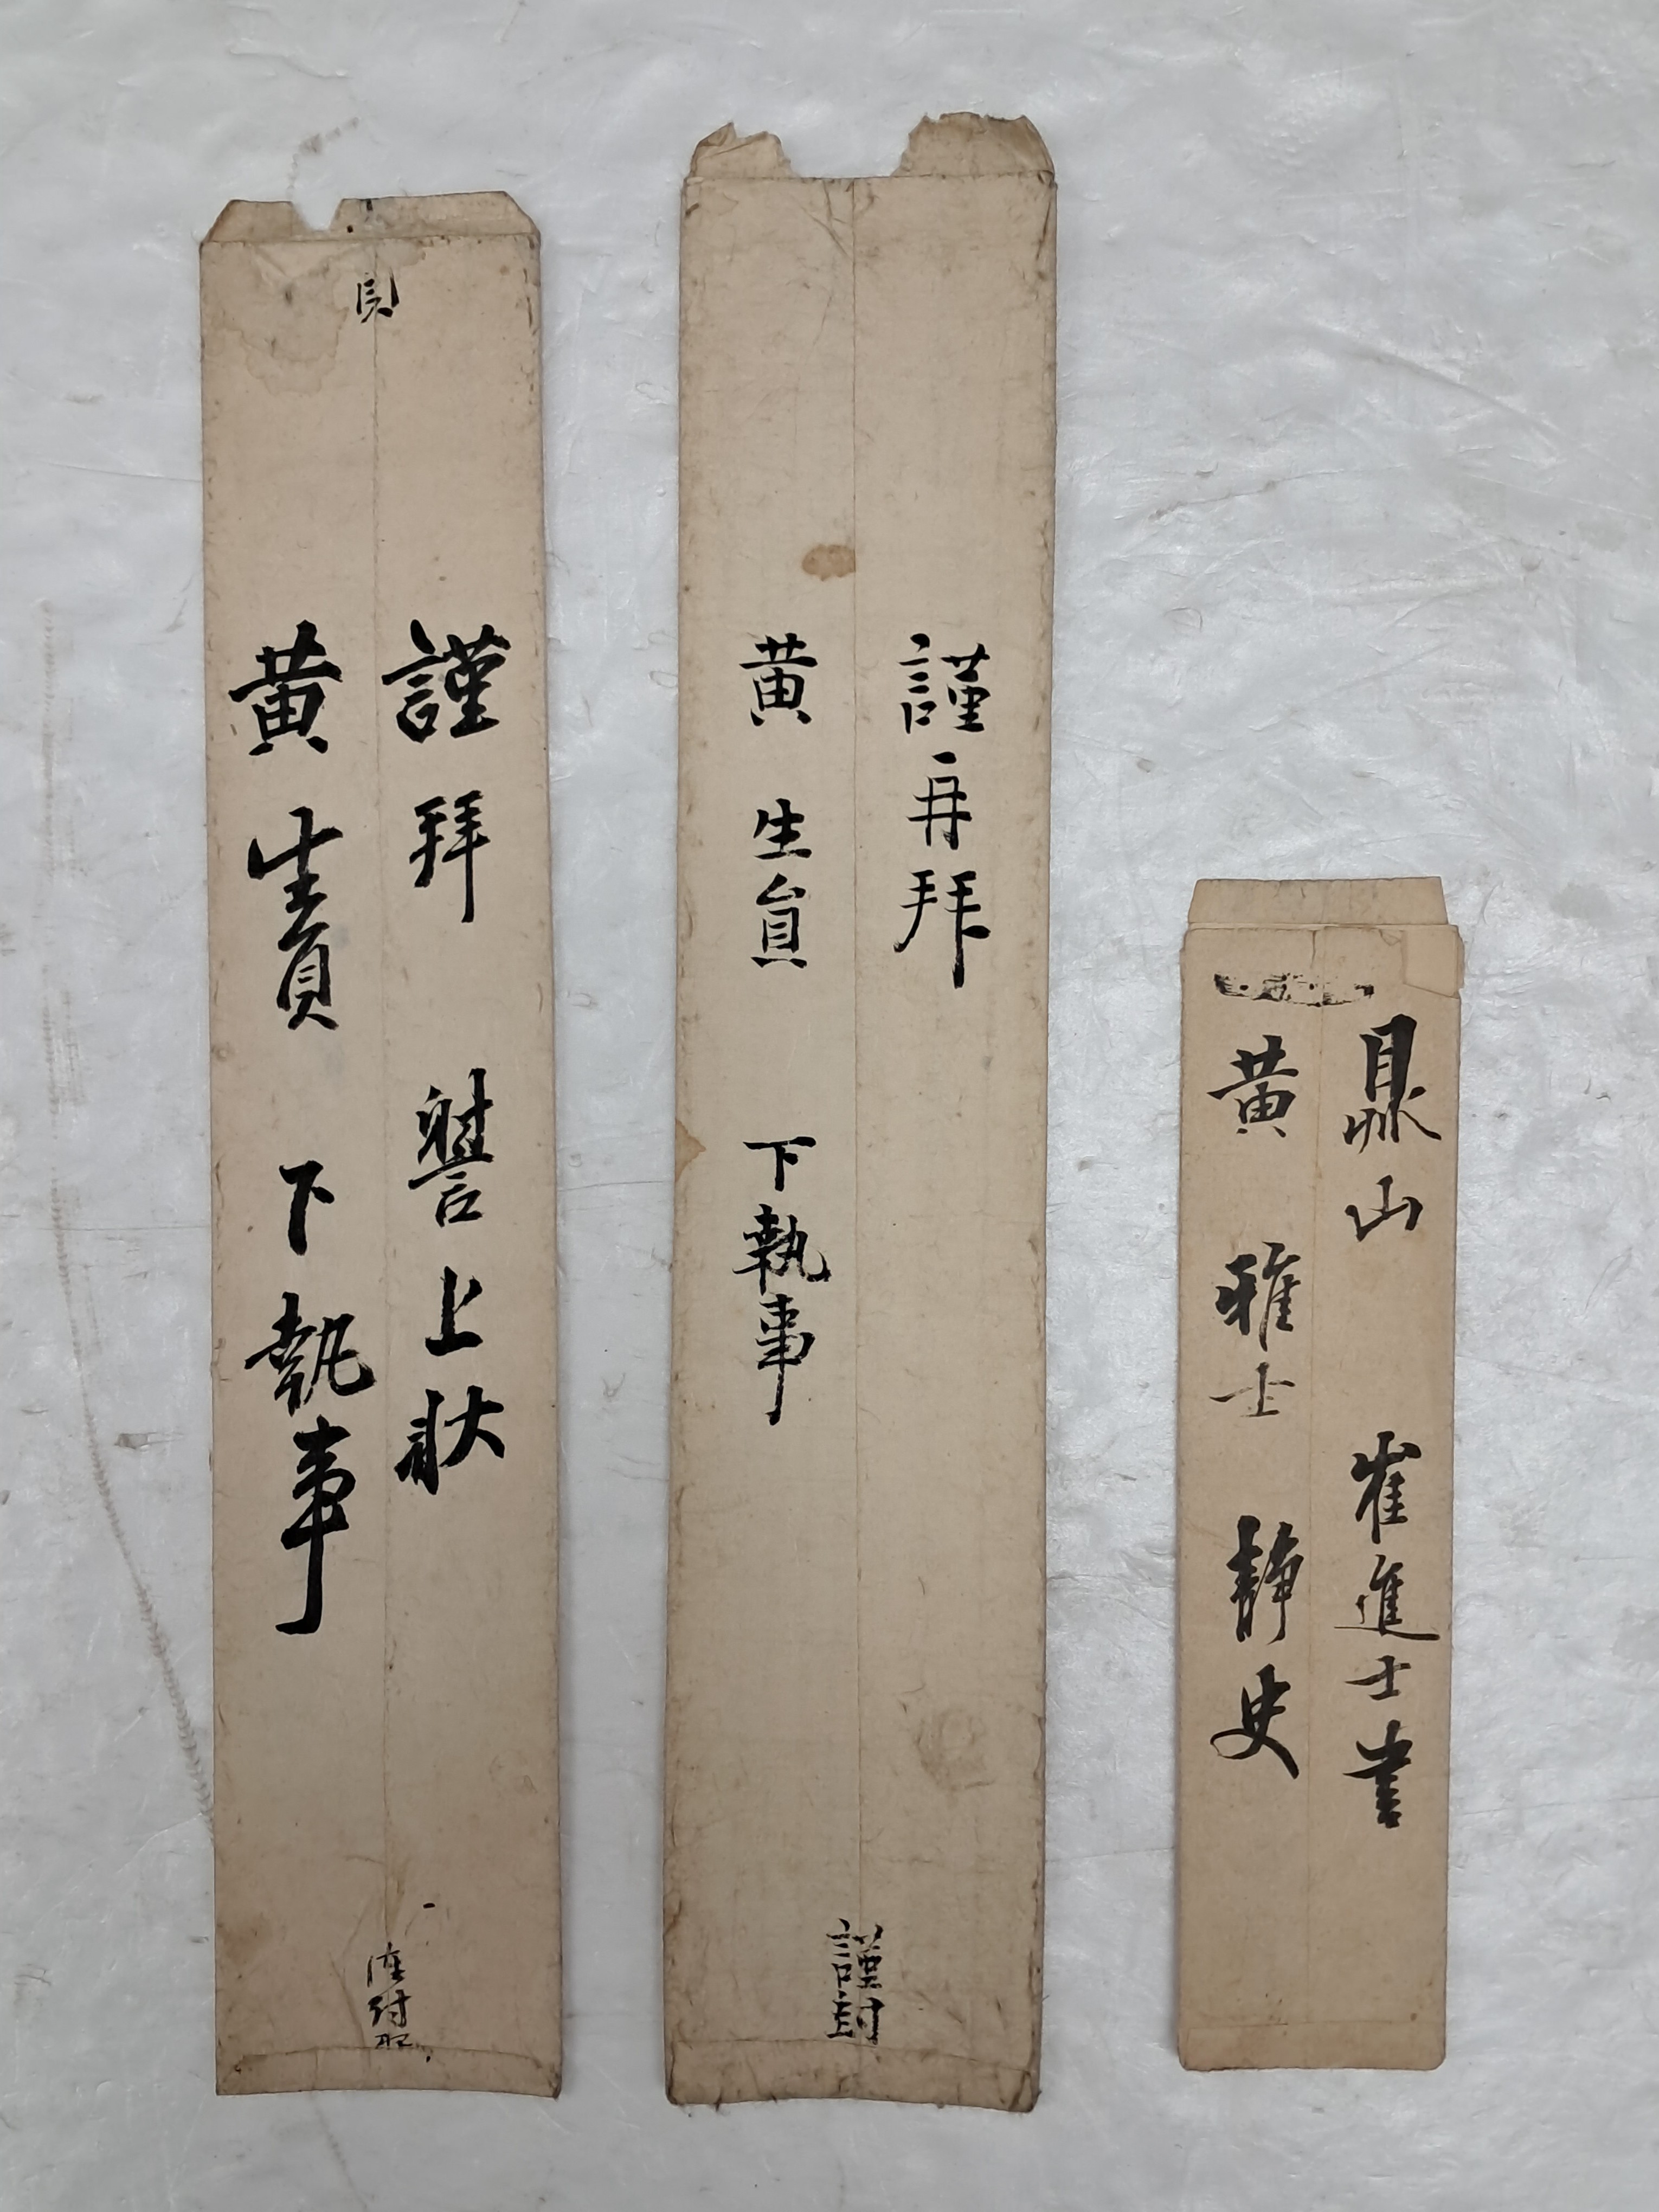 鼎山 崔進士書
黃 雅士 靜史
謹再拜
黃 生員 下執事
謹封
謹拜 謝上狀
黃 生員 下執事